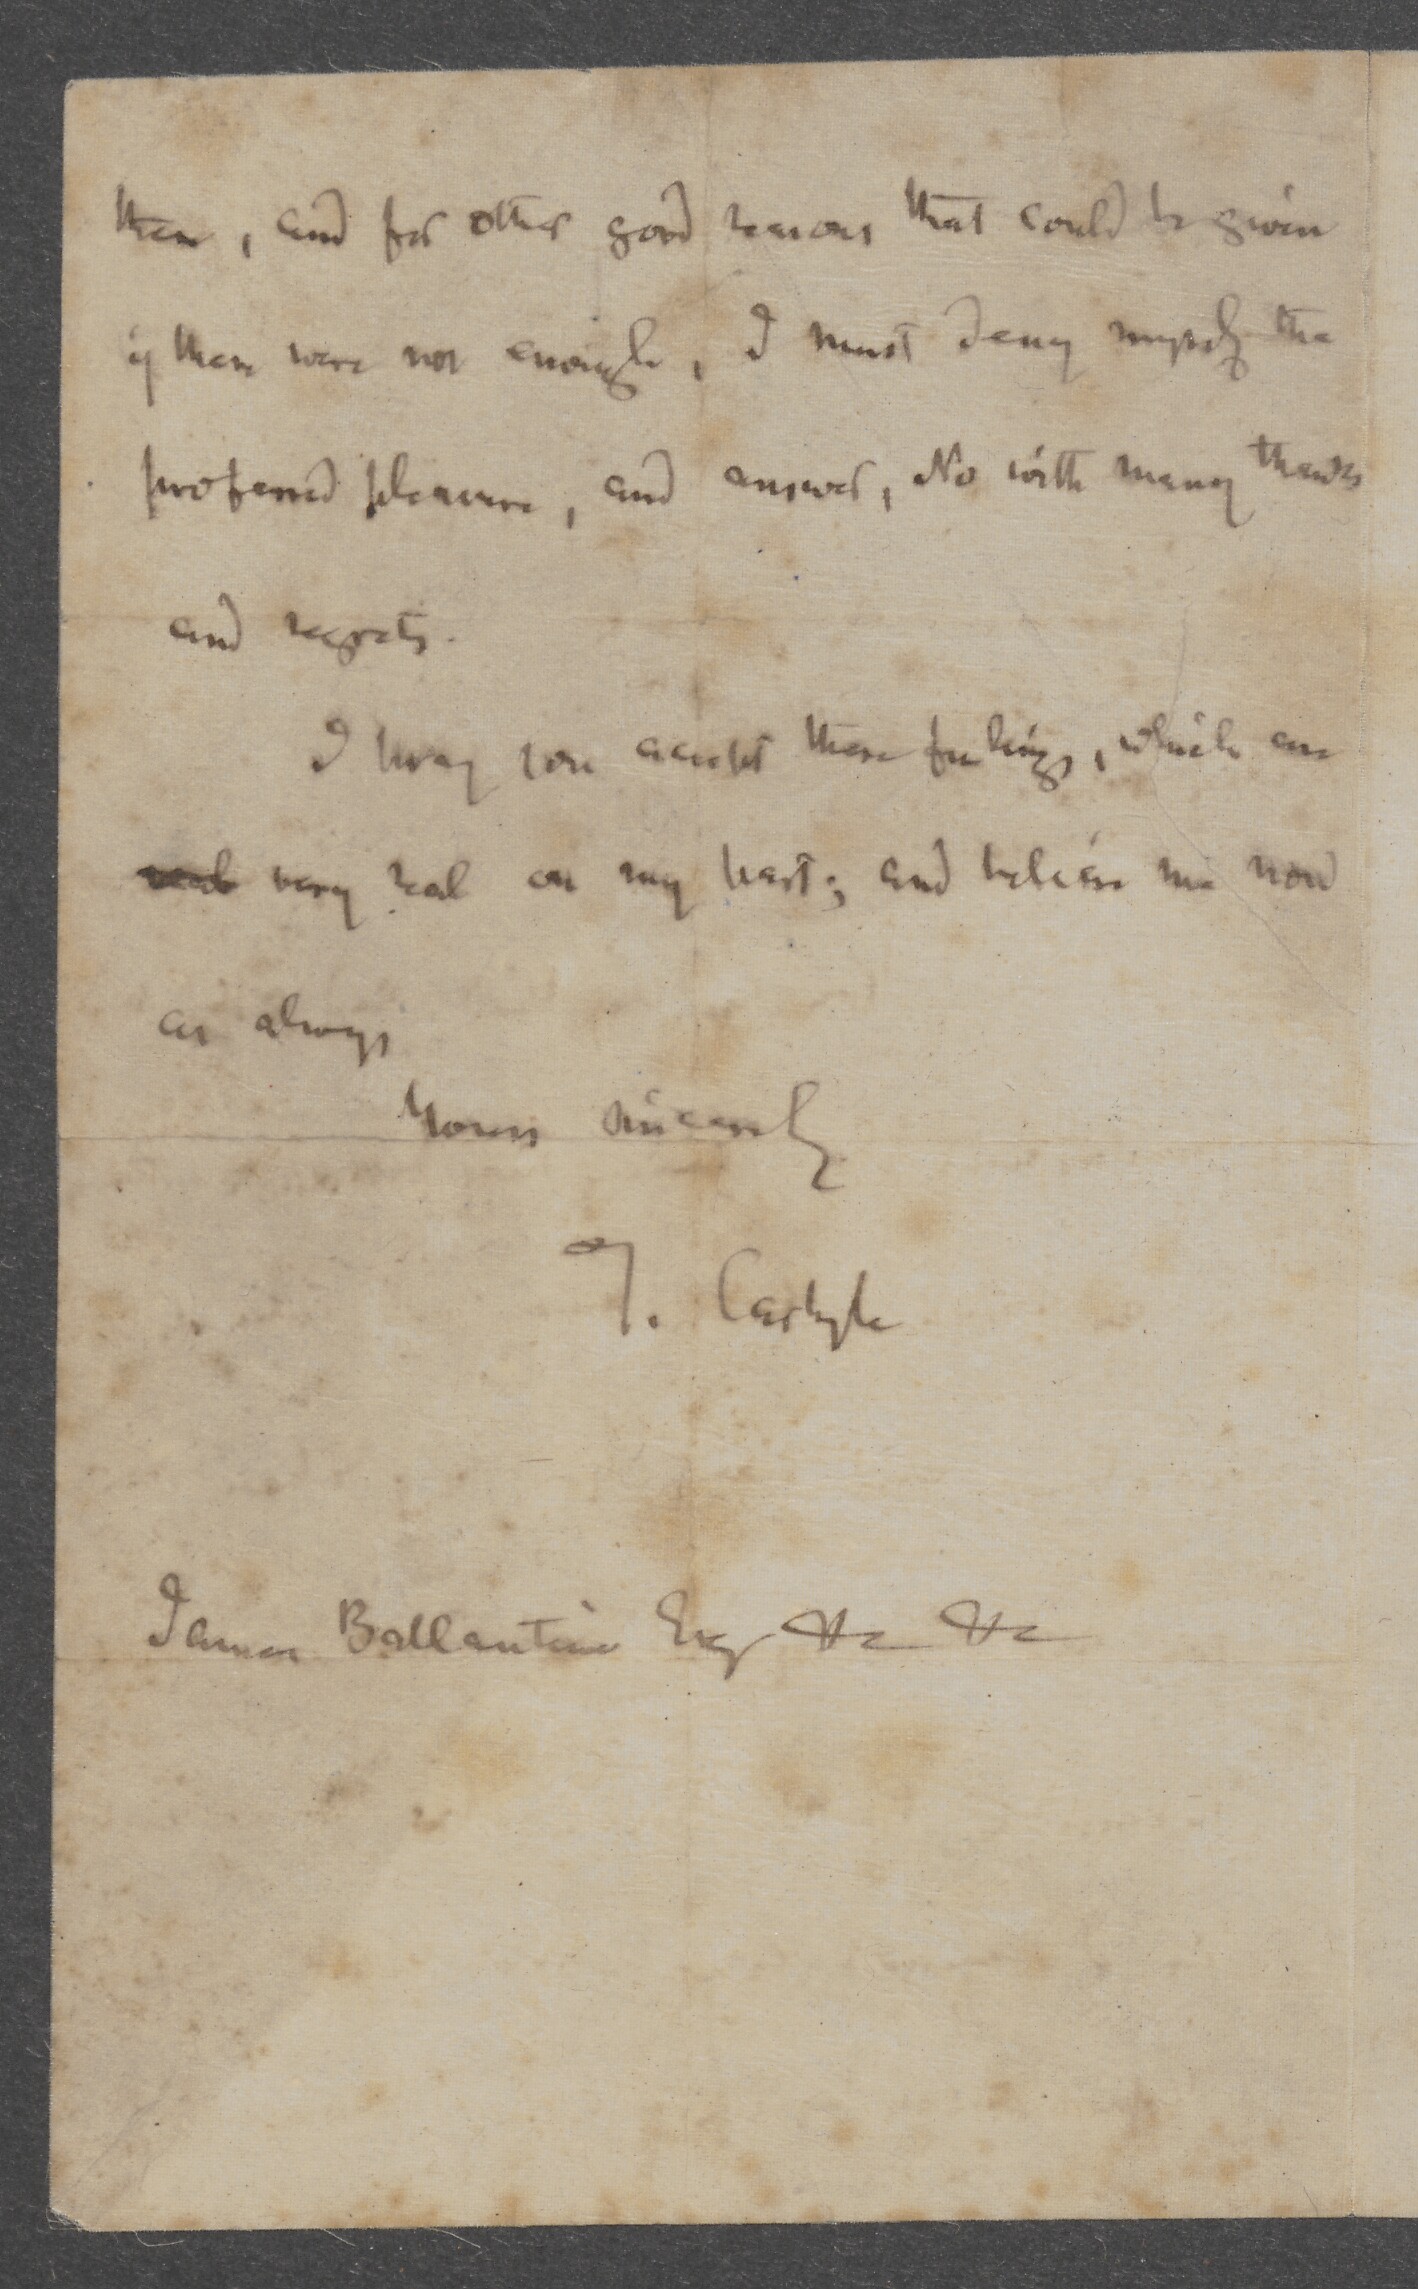 these, and for other good reasons that could be given
if these were not enough, I must deny myself the
proferred pleasure, and answer, No with many thanks
and regrets.
I pray you accept these feelings, which are
very real on my part; and believe me now
as always
Yours sincerely
T. Carlyle
James Ballantine Esq &c &c